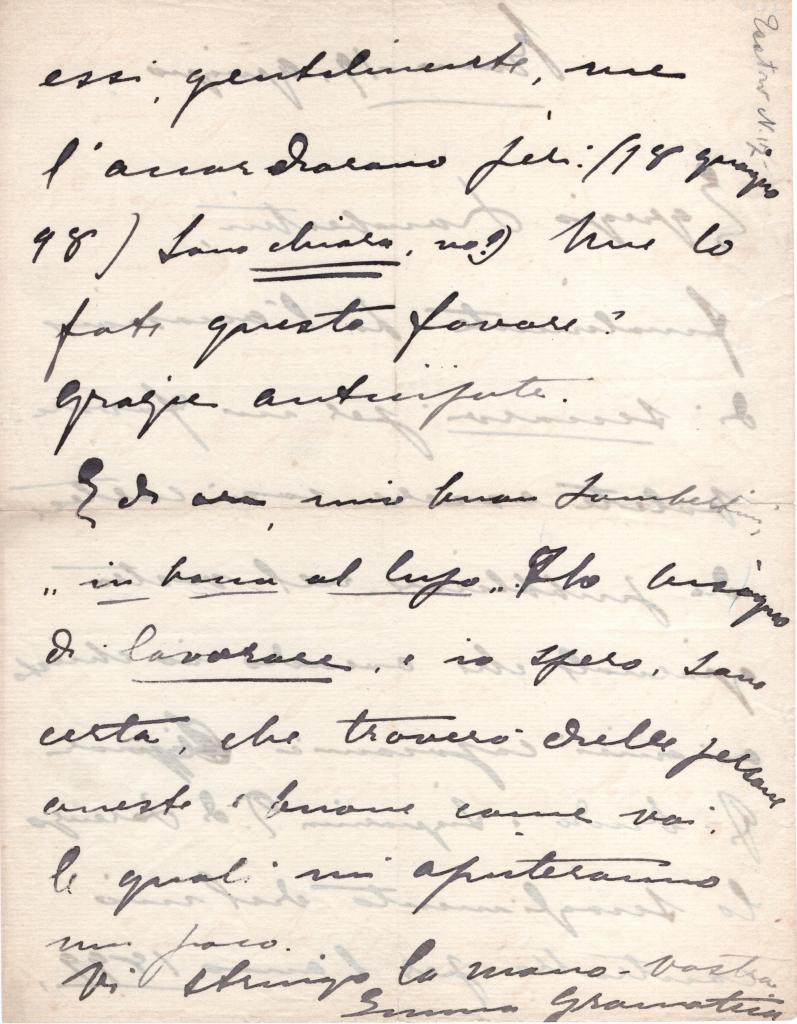 essi, gentilmente, me
l'accordarono per: (18 giugno
98) Sono chiara, no?) Me lo
fate questo favore?
Grazie anticipate.
E di ora, mio buon Lambertini,
„in bocca al lupo„. Ho bisogno
di lavorare, e io spero, sono
certa, che troverò delle persone
oneste e buone come voi,
le quali mi aiuteranno
un poco.
Vi stringo la mano - vostra
Emma Gramatica